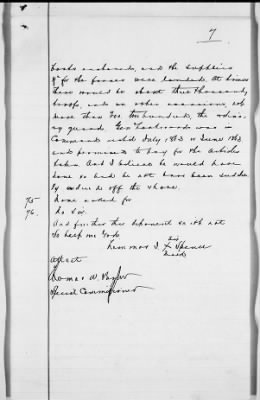 7
boats anchored, and the supplies
for the forces were landed. At times
there would be about three thousand
troops, and on other occasions, not
more than two hundred, the
guards. Gen was in
Command until July 1863 or June 1863
and promised to pay for the articles
taken. And I believe he would have
done so had he not have been
ordered off the shore.
75 None asked for
76. No Sir.
And further this deponent saith not
So help me God.
his
X Spence
mark
Attest
Thomas W.
Special Commissioner